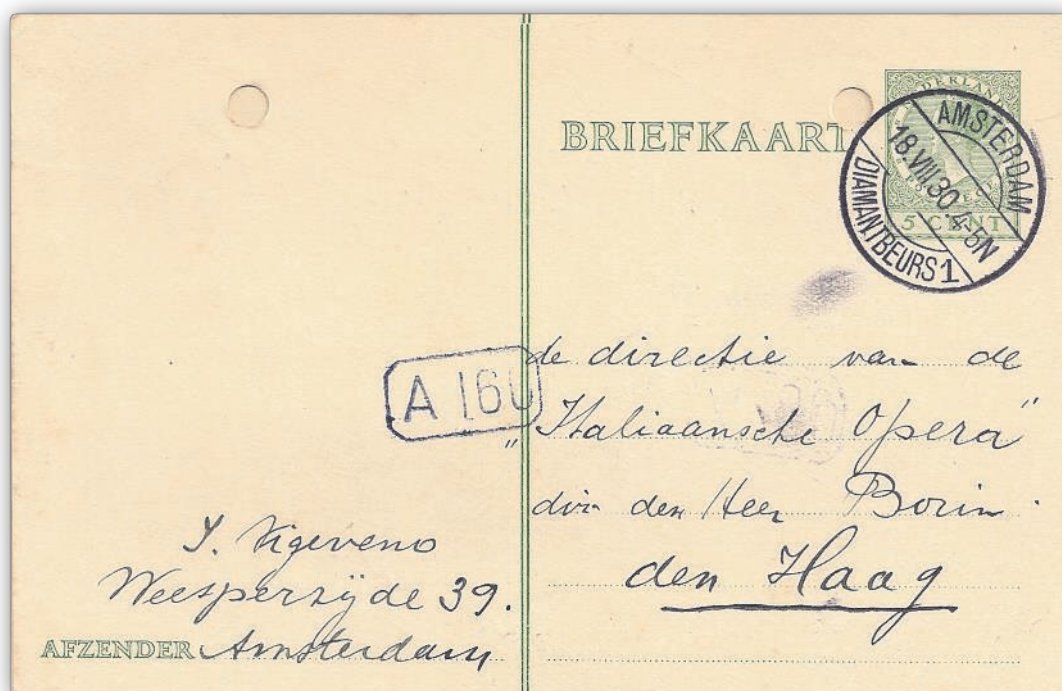 BRIEFKAART
NEDERLAND
5 CENT
AMSTERDAM
18.VIII.30.4-5N
DIAMANTBEURS 1
A 160
de directie van de
„Italiaansche Opera"
dir den Heer Borin.
den Haag
S. Vigeveno
Weesperzijde 39.
AFZENDER Amsterdam